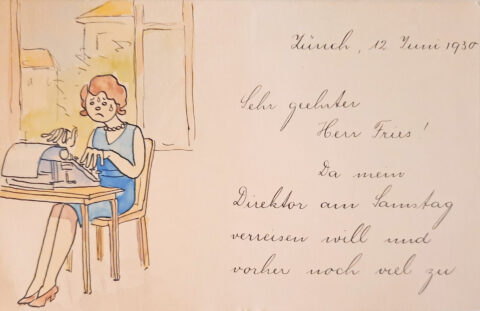 Zürich, 12 Juni 1930
Sehr geehrter
Herr Fries!
Da mein
Direktor am Samstag
verreisen will und
vorher noch viel zu